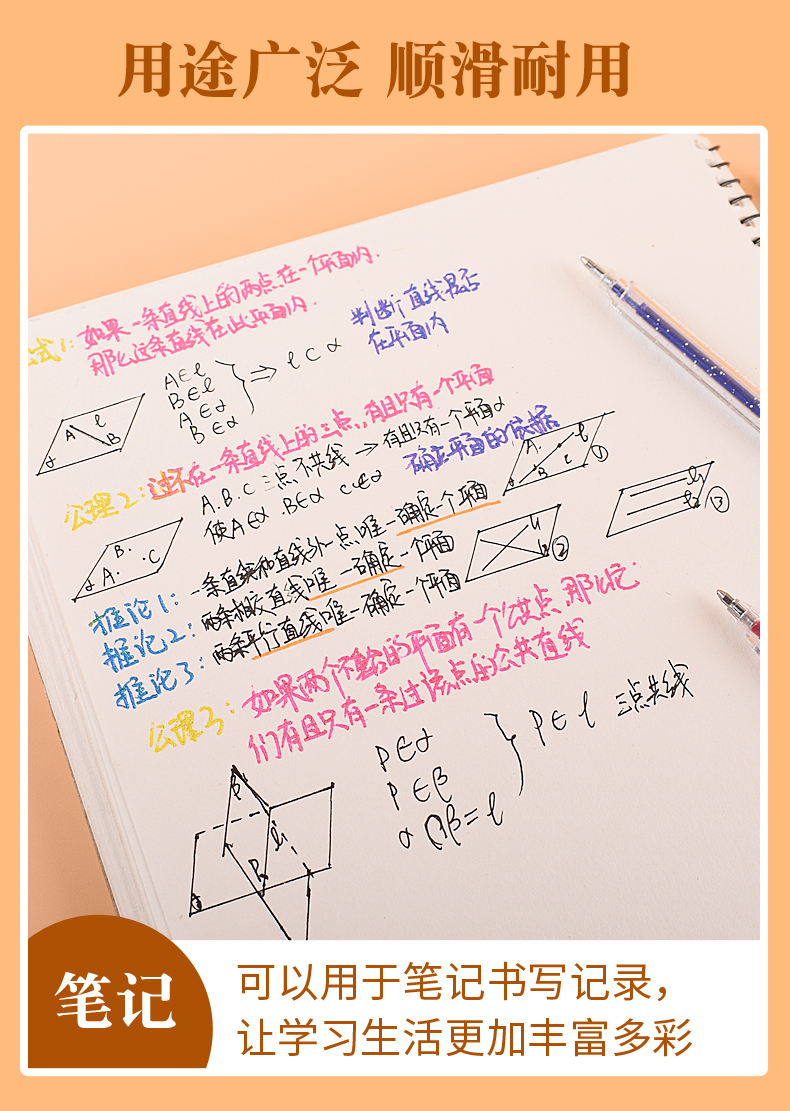 用途广泛 顺滑耐用
如果一条直线上的两点在一个平面内.
式1:
那么这条直线在此平面内.
判断直线是否
在平面内
A∈l
B∈l
A∈α
B∈α
⇒ l⊂α
A l B α
公理2:过不在一条直线上的三点,有且只有一个平面
A.B.C三点不共线→有且只有一个平面α
使A∈α.B∈α C∈α
确定平面的依据
A. B C l ①
B. A. C α
推论1:一条直线和直线外一点唯一确定一个平面
推论2:两条相交直线唯一确定一个平面
推论3:两条平行直线唯一确定一个平面
l1 l2 ②
l1 l2 ③
公理3:如果两个不重合的平面有一个公共点,那么它
们有且只有一条过该点的公共直线
P∈α
P∈β
α∩β=l
P∈l 三点共线
β
l
P
α
笔记
可以用于笔记书写记录，
让学习生活更加丰富多彩